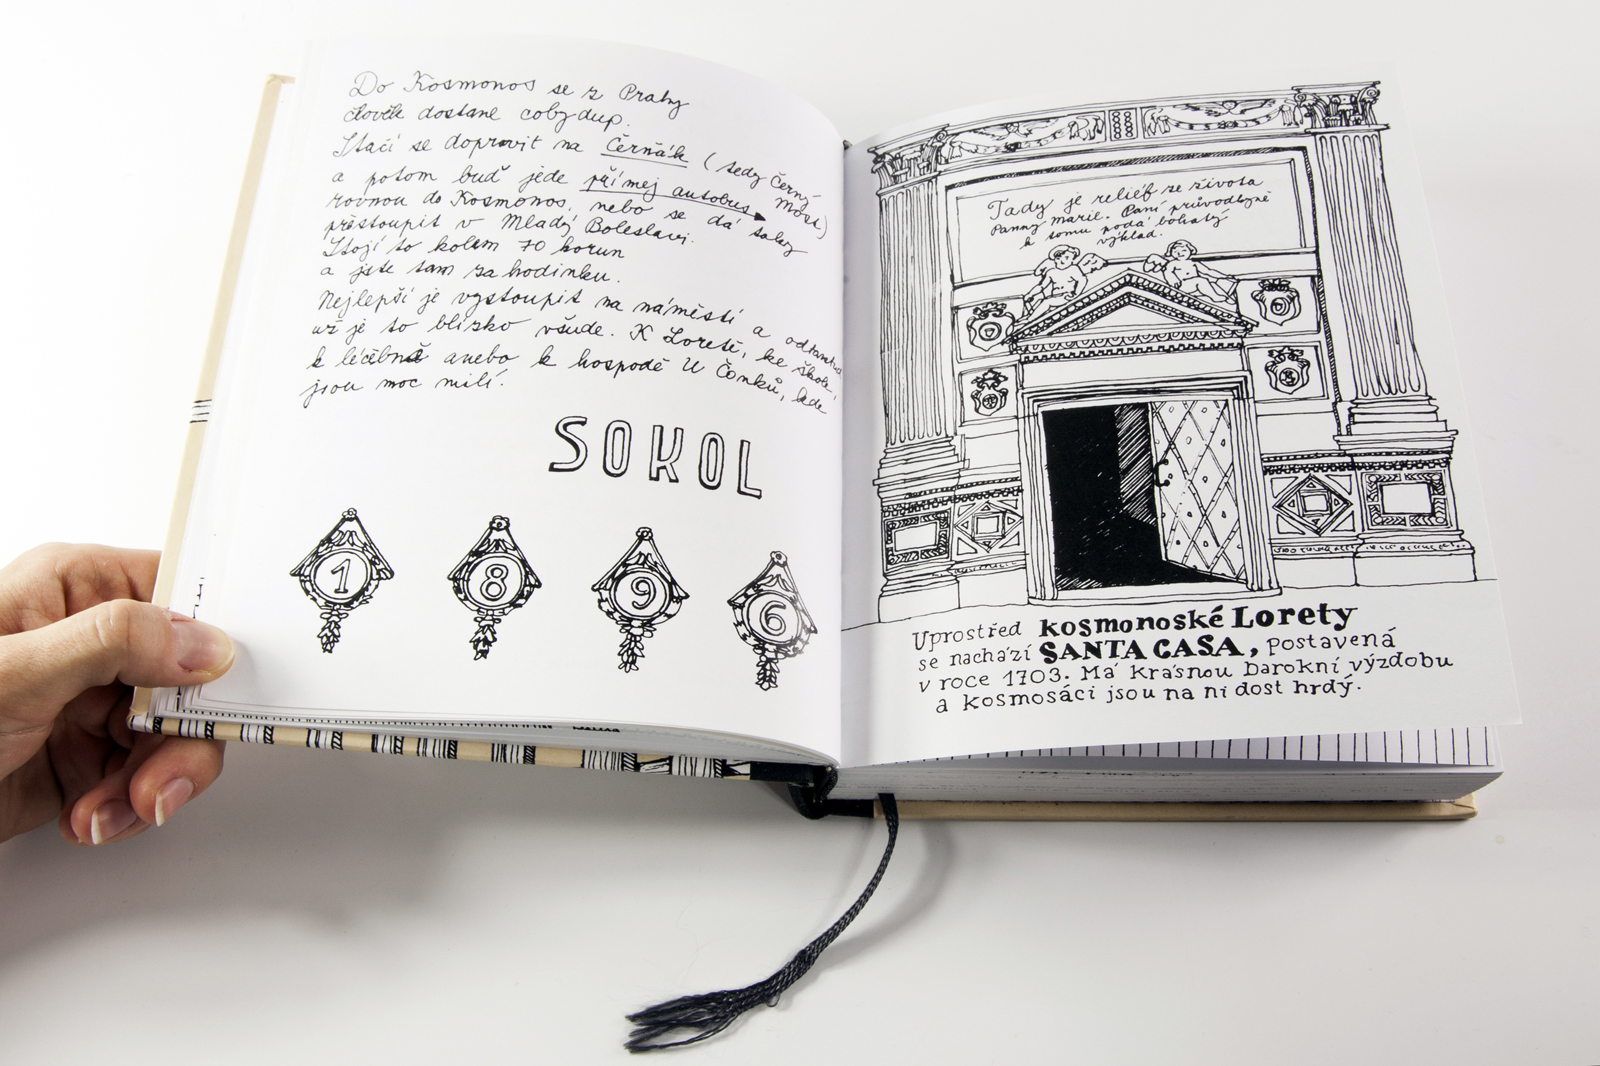 Do Kosmonos se z Prahy
člověk dostane cobydup.
Stačí se dopravit na Černák (tedy Černý Most)
a potom buď jede přímej autobus
rovnou do Kosmonos, nebo se dá taky
přestoupit v Mladý Boleslavi.
Stojí to kolem 70 korun
a jste tam za hodinku.
Nejlepší je vystoupit na náměstí a odtamtud
už je to blízko všude. K Loretě, ke škole,
k léčebně anebo k hospodě U Čonků, kde
jsou moc milí.
SOKOL
1 8 9 6
Tady je reliéf ze života
Panny Marie. Paní průvodkyně
k tomu podá bohatý
výklad.
Uprostřed kosmonoské Lorety
se nachází SANTA CASA, postavená
v roce 1703. Má krásnou barokní výzdobu
a kosmosáci jsou na ni dost hrdý.